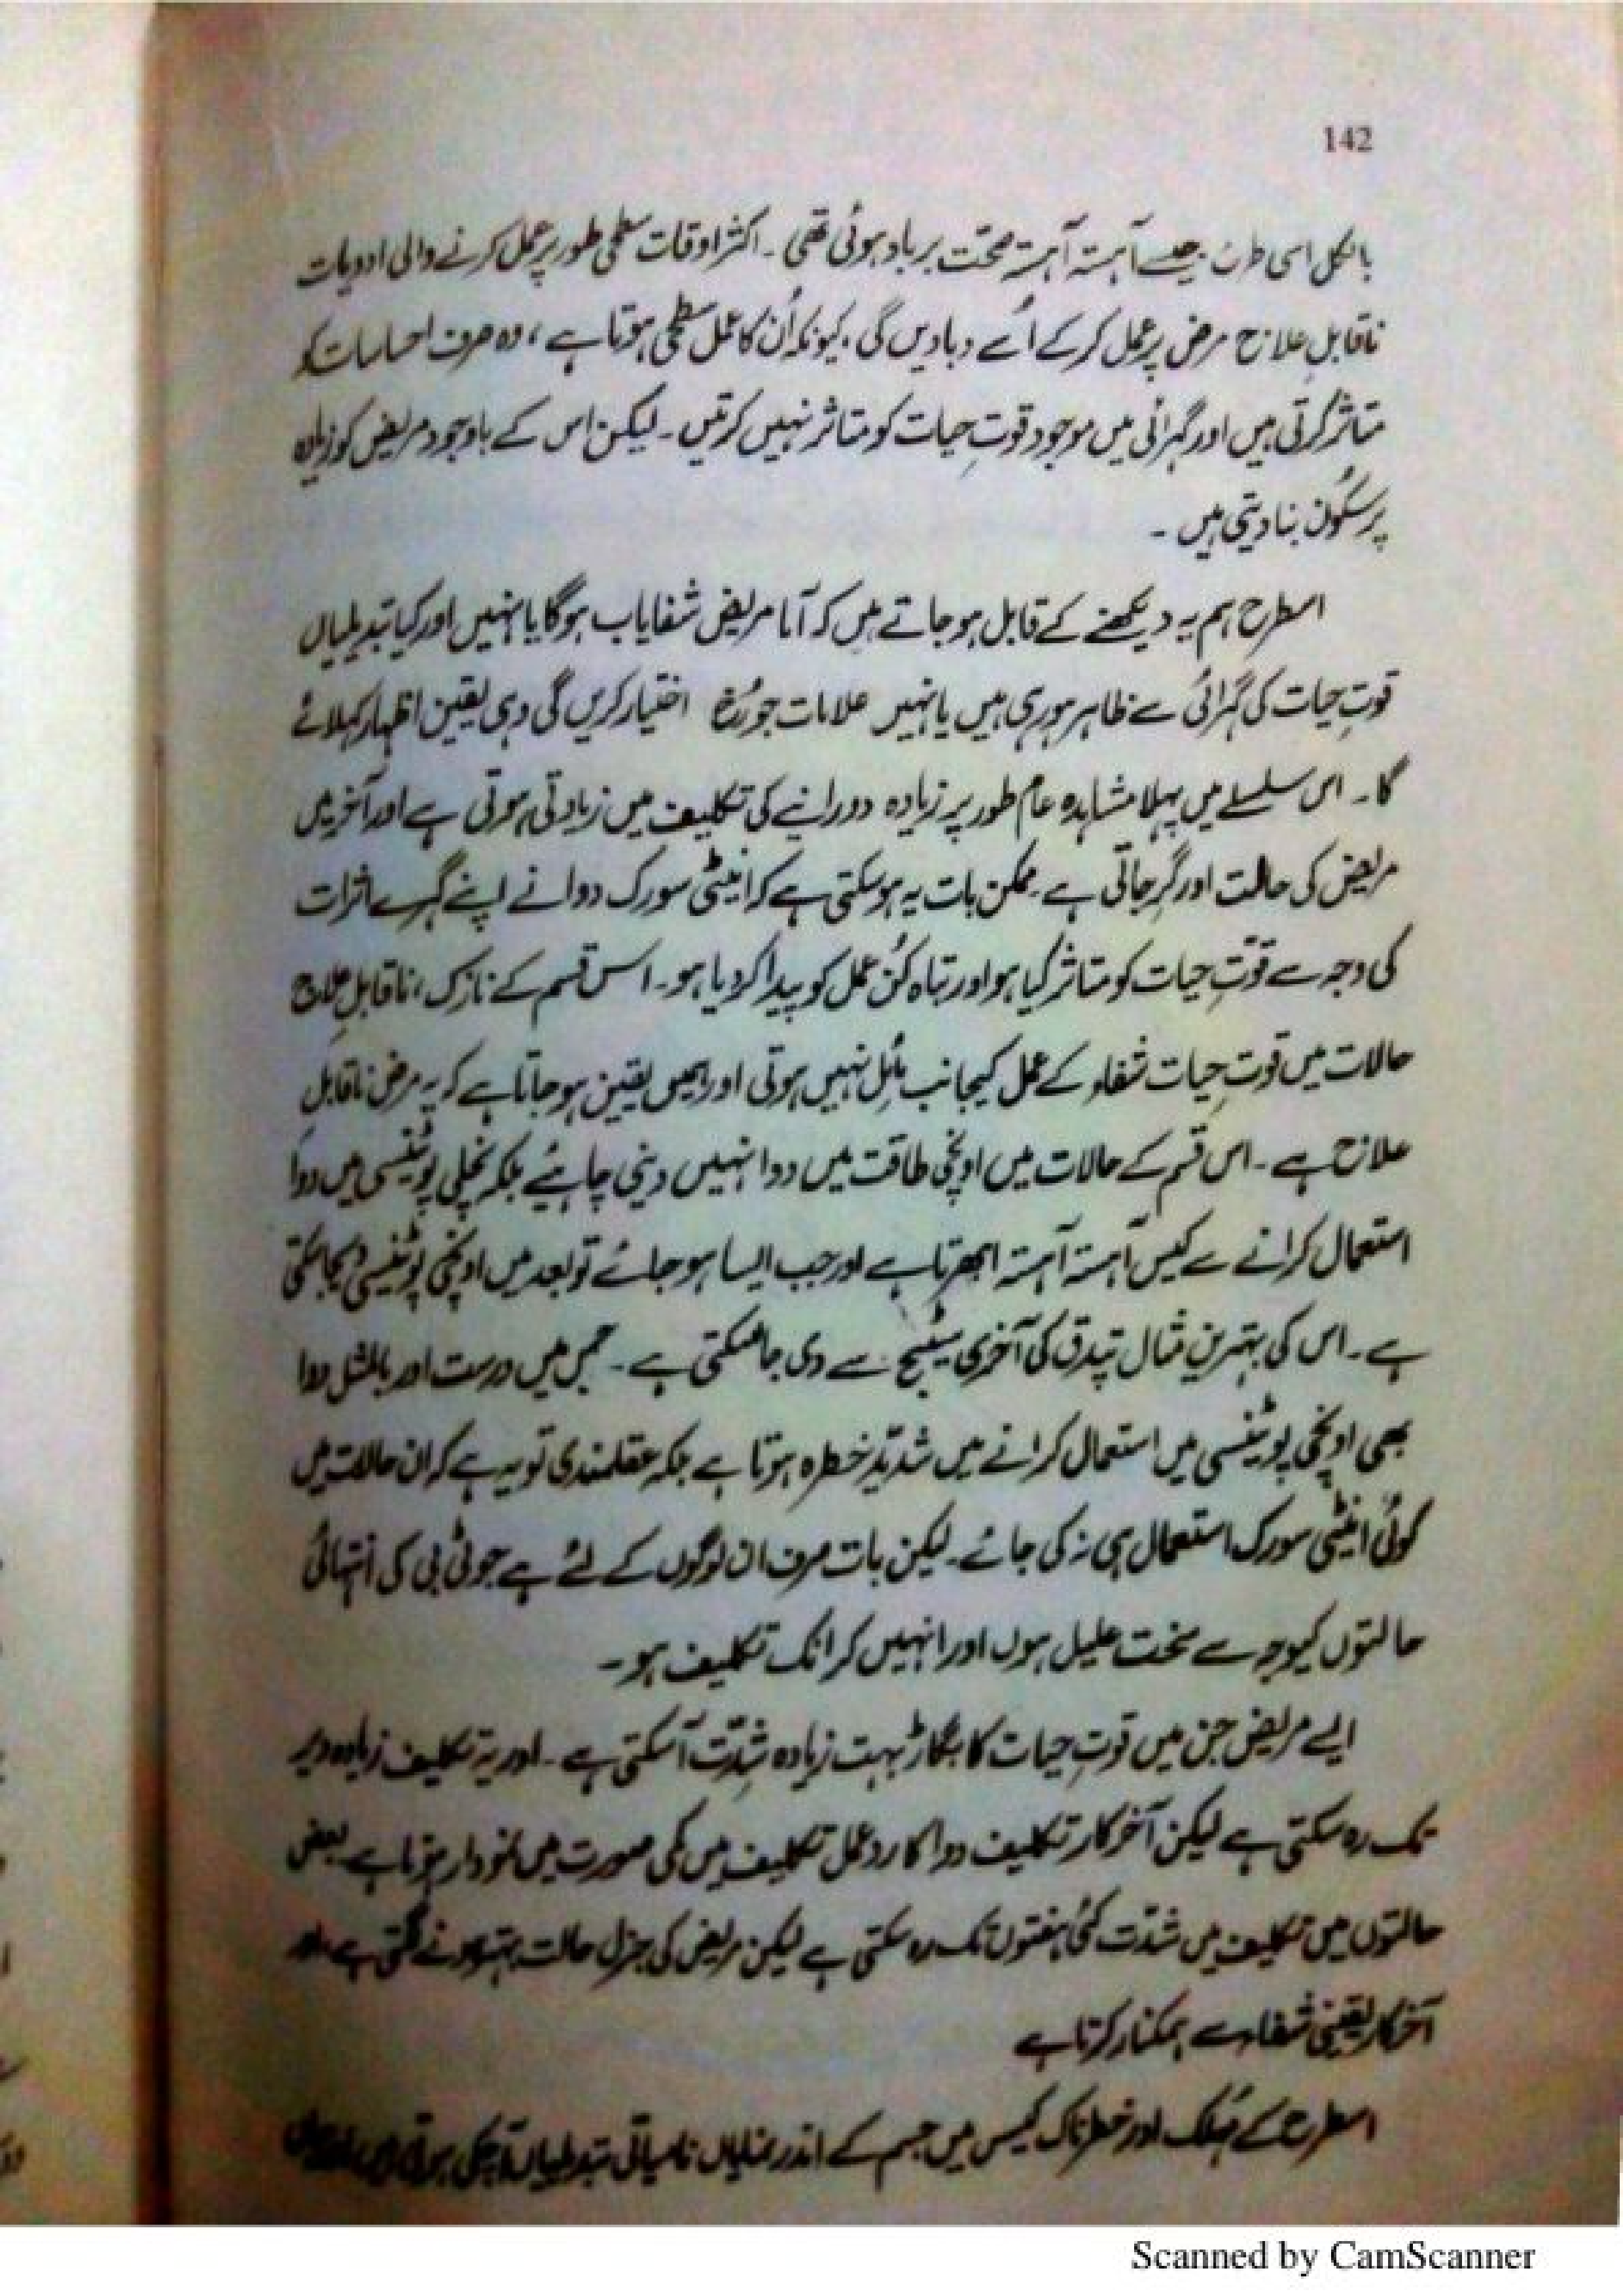 142
بالکل اسی طرح جیسے آہستہ آہستہ صحت برباد ہوئی تھی ۔ اکثر اوقات سطحی طور پر عمل کرنے والی ادویات
ناقابلِ علاج مرض پر عمل کر کے اُسے دبا دیں گی ، کیونکہ اُن کا عمل سطحی ہوتا ہے ، وہ صرف احساسات کو
متاثر کرتی ہیں اور گہرائی میں موجود قوتِ حیات کو متاثر نہیں کرتیں ۔ لیکن اس کے باوجود مریض کو زیادہ
پرسکون بنا دیتی ہیں ۔
اسطرح ہم یہ دیکھنے کے قابل ہو جاتے ہیں کہ آیا مریض شفایاب ہوگا یا نہیں اور کیا تبدیلیاں
قوتِ حیات کی گہرائی سے ظاہر ہو رہی ہیں یا نہیں علامات جو رُخ اختیار کریں گی وہی یقین اظہار کہلائے
گا ۔ اس سلسلے میں پہلا مشاہدہ عام طور پر زیادہ دورانیے کی تکلیف میں زیادتی ہوتی ہے اور آخر میں
مریض کی حالت اور گر جاتی ہے ۔ ممکن بات یہ ہو سکتی ہے کہ اینٹی سورک دوا نے اپنے گہرے اثرات
کی وجہ سے قوّتِ حیات کو متاثر کیا ہو اور تباہ کُن عمل کو پیدا کر دیا ہو ۔ اس قسم کے نازک ، ناقابلِ علاج
حالات میں قوتِ حیات شفاء کے عمل کیجانب مائل نہیں ہوتی اور ہمیں یقین ہو جاتا ہے کہ یہ مرض ناقابلِ
علاج ہے ۔ اس قسم کے حالات میں اونچی طاقت میں دوا نہیں دینی چاہیئے بلکہ نچلی پوٹینسی میں دوا
استعمال کرانے سے کیس آہستہ آہستہ ابھرتا ہے اور جب ایسا ہو جائے تو بعد میں اونچی پوٹینسی دیجا سکتی
ہے ۔ اس کی بہترین مثال تپدق کی آخری سٹیج سے دی جا سکتی ہے ۔ جس میں درست اور بالمثل دوا
بھی اونچی پوٹینسی میں استعمال کرانے میں شدید خطرہ ہوتا ہے بلکہ عقلمندی تو یہ ہے کہ ان حالات میں
کوئی اینٹی سورک استعمال ہی نہ کی جائے ۔ لیکن بات صرف ان لوگوں کے لئے ہے جو ٹی بی کی انتہائی
حالتوں کیوجہ سے سخت علیل ہوں اور انہیں کرانک تکلیف ہو ۔
ایسے مریض جن میں قوتِ حیات کا بگاڑ بہت زیادہ شدّت آ سکتی ہے ۔ اور یہ تکلیف زیادہ دیر
تک رہ سکتی ہے لیکن آخر کار تکلیف دوا کا ردعمل تکلیف میں کمی صورت میں نمودار ہوتا ہے بعض
حالتوں میں تکلیف میں شدّت کئی ہفتوں تک رہ سکتی ہے لیکن مریض کی جنرل حالت بہتر ہونے لگتی ہے اور
آخر کار یقینی شفاء سے ہمکنار کرتا ہے
اسطرح کے مُہلک اور خطرناک کیس میں جسم کے اندر نمایاں نامیاتی تبدیلیاں آ چکی ہوتی ہیں
Scanned by CamScanner